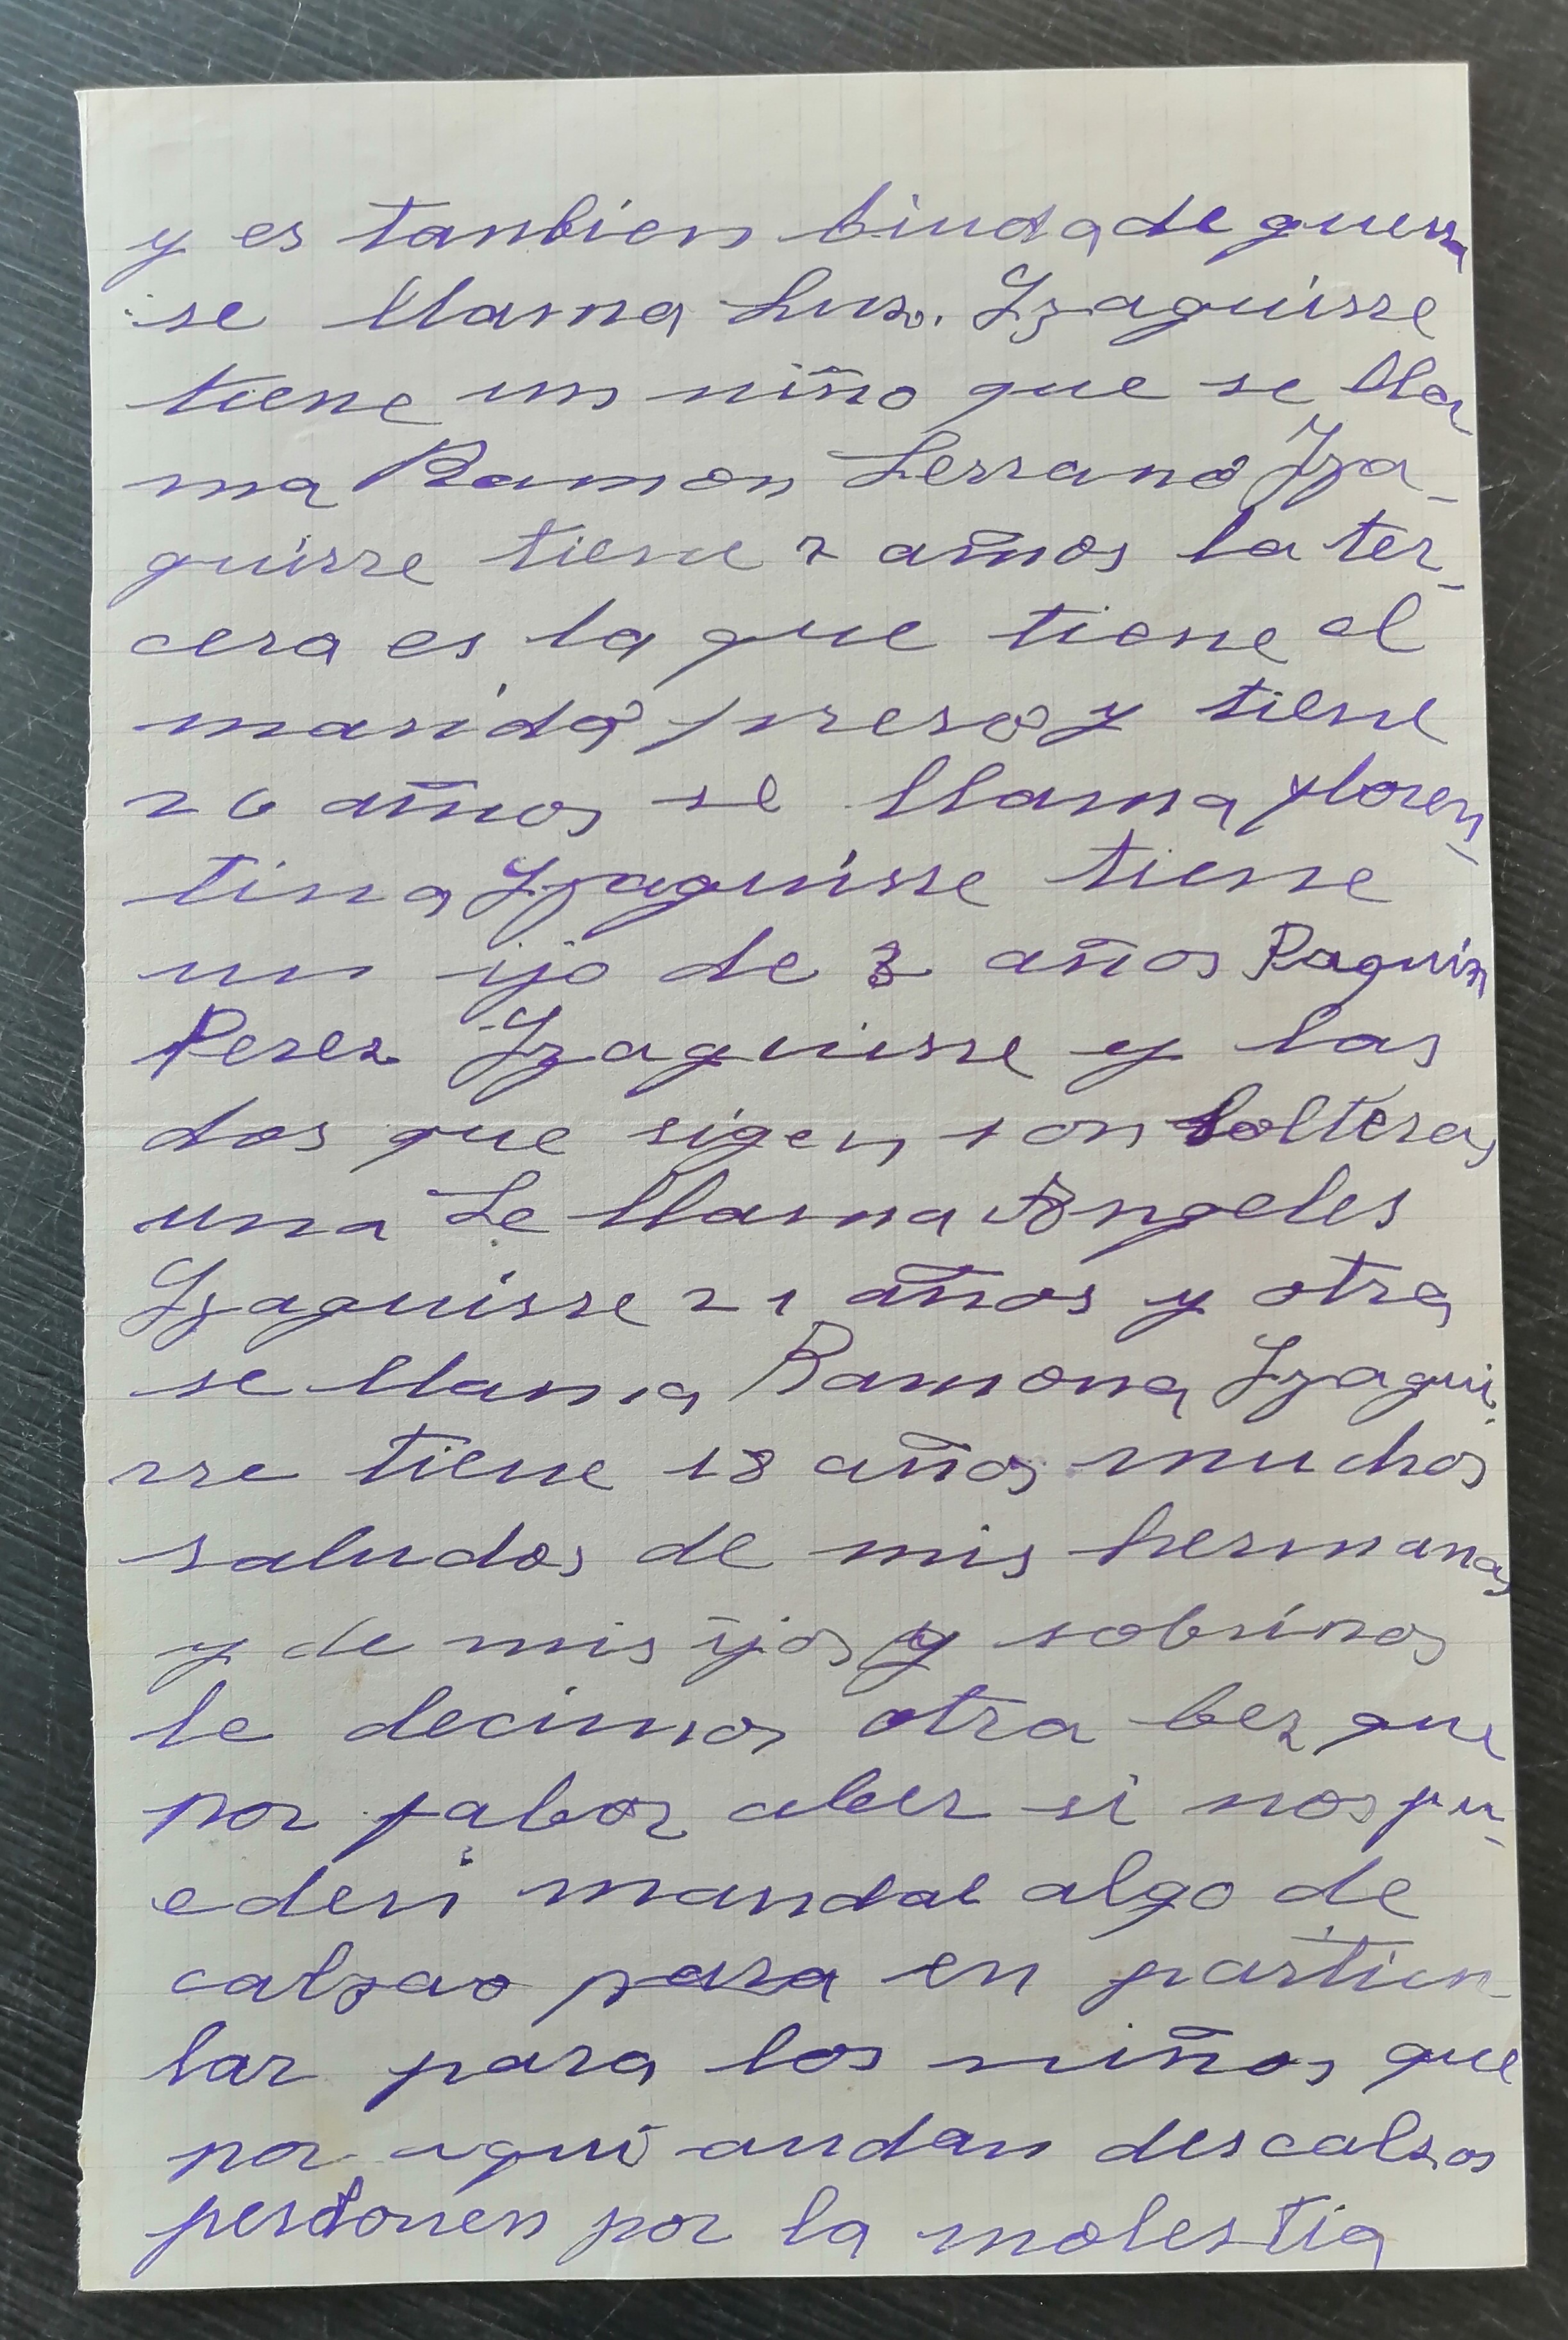 y es tanbien biuda de guerra
se llama Luz. Izaguirre
tiene un niño que se lla
ma Ramon Serrano Iza-
guirre tiene 7 años la ter-
cera es la que tiene el
marido preso y tiene
26 años se llama Floren-
tina Izaguirre tiene
un ijo de 3 años Paquin
Perez Izaguirre y las
dos que sigen son solteras
una se llama Angeles
Izaguirre 21 años y otra
se llama Ramona Izagui-
rre tiene 18 años muchos
saludos de mis hermanas
y de mis ijos y sobrinos
le decimos otra bez que
por fabor aber si nos pu-
eden mandal algo de
calzao para en particu-
lar para los niños que
por aqui andan descalsos
perdonen por la molestia